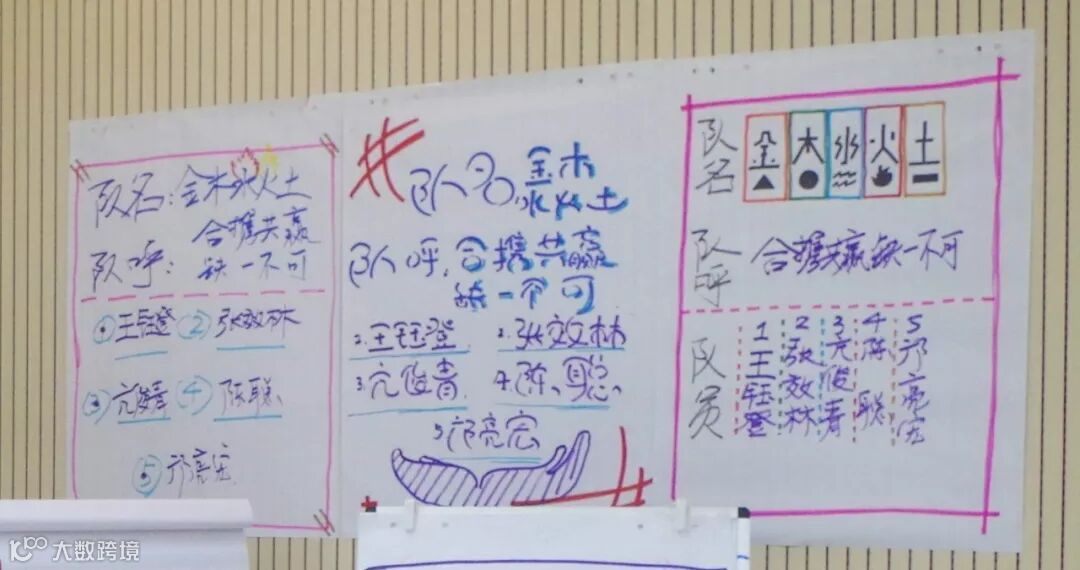 队名:金木水火土
队呼:合携共赢
缺一不可
①王钰澄 ②张效林
③亢俊青 ④陈聪
⑤邝亮宏
队名:金木
水火土
队呼:合携共赢
缺一不可
1.王钰澄 2.张效林
3.亢俊青 4.陈聪
5邝亮宏
队名 金 木 水 火 土
队呼 合携共赢缺一不可
队员
1王钰登
2张效林
3亢俊青
4陈聪
5邝亮宏
大数跨境